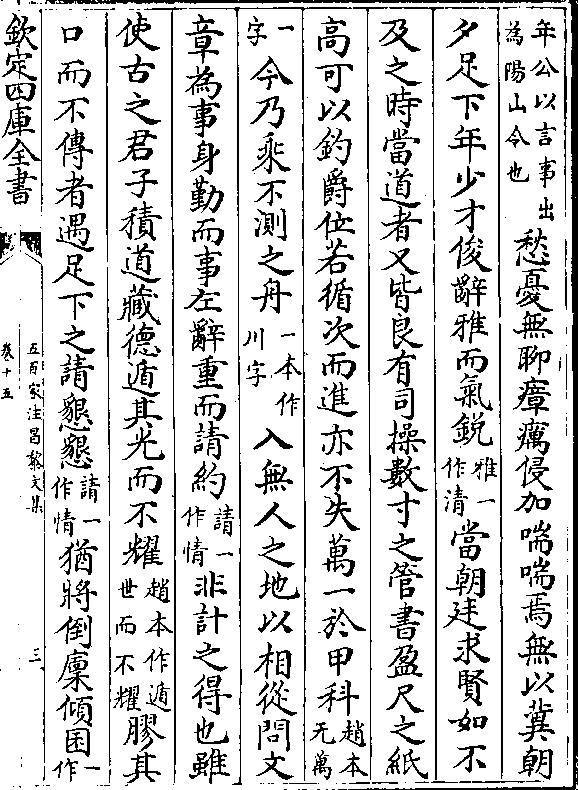 年公以言事出
為陽山令也
愁憂無聊瘴癘侵加喘喘焉無以冀朝
夕足下年少才俊辭雅而氣銳
雅一
作清
當朝廷求賢如不
及之時當道者又皆良有司操數寸之管書盈尺之紙
高可以釣爵位若循次而進亦不失萬一於甲科
趙本
无萬
一
字
今乃乘不測之舟
一本作
川字
入無人之地以相從問文
章為事身勤而事左辭重而請約
請一
作情
非計之得也雖
使古之君子積道藏德遁其光而不耀
趙本作遁
世而不耀
膠其
口而不傳者遇足下之請懇懇
請一
作情
猶將倒廩傾囷
一
作
欽定四庫全書
五百家注昌黎文集
卷十五
三